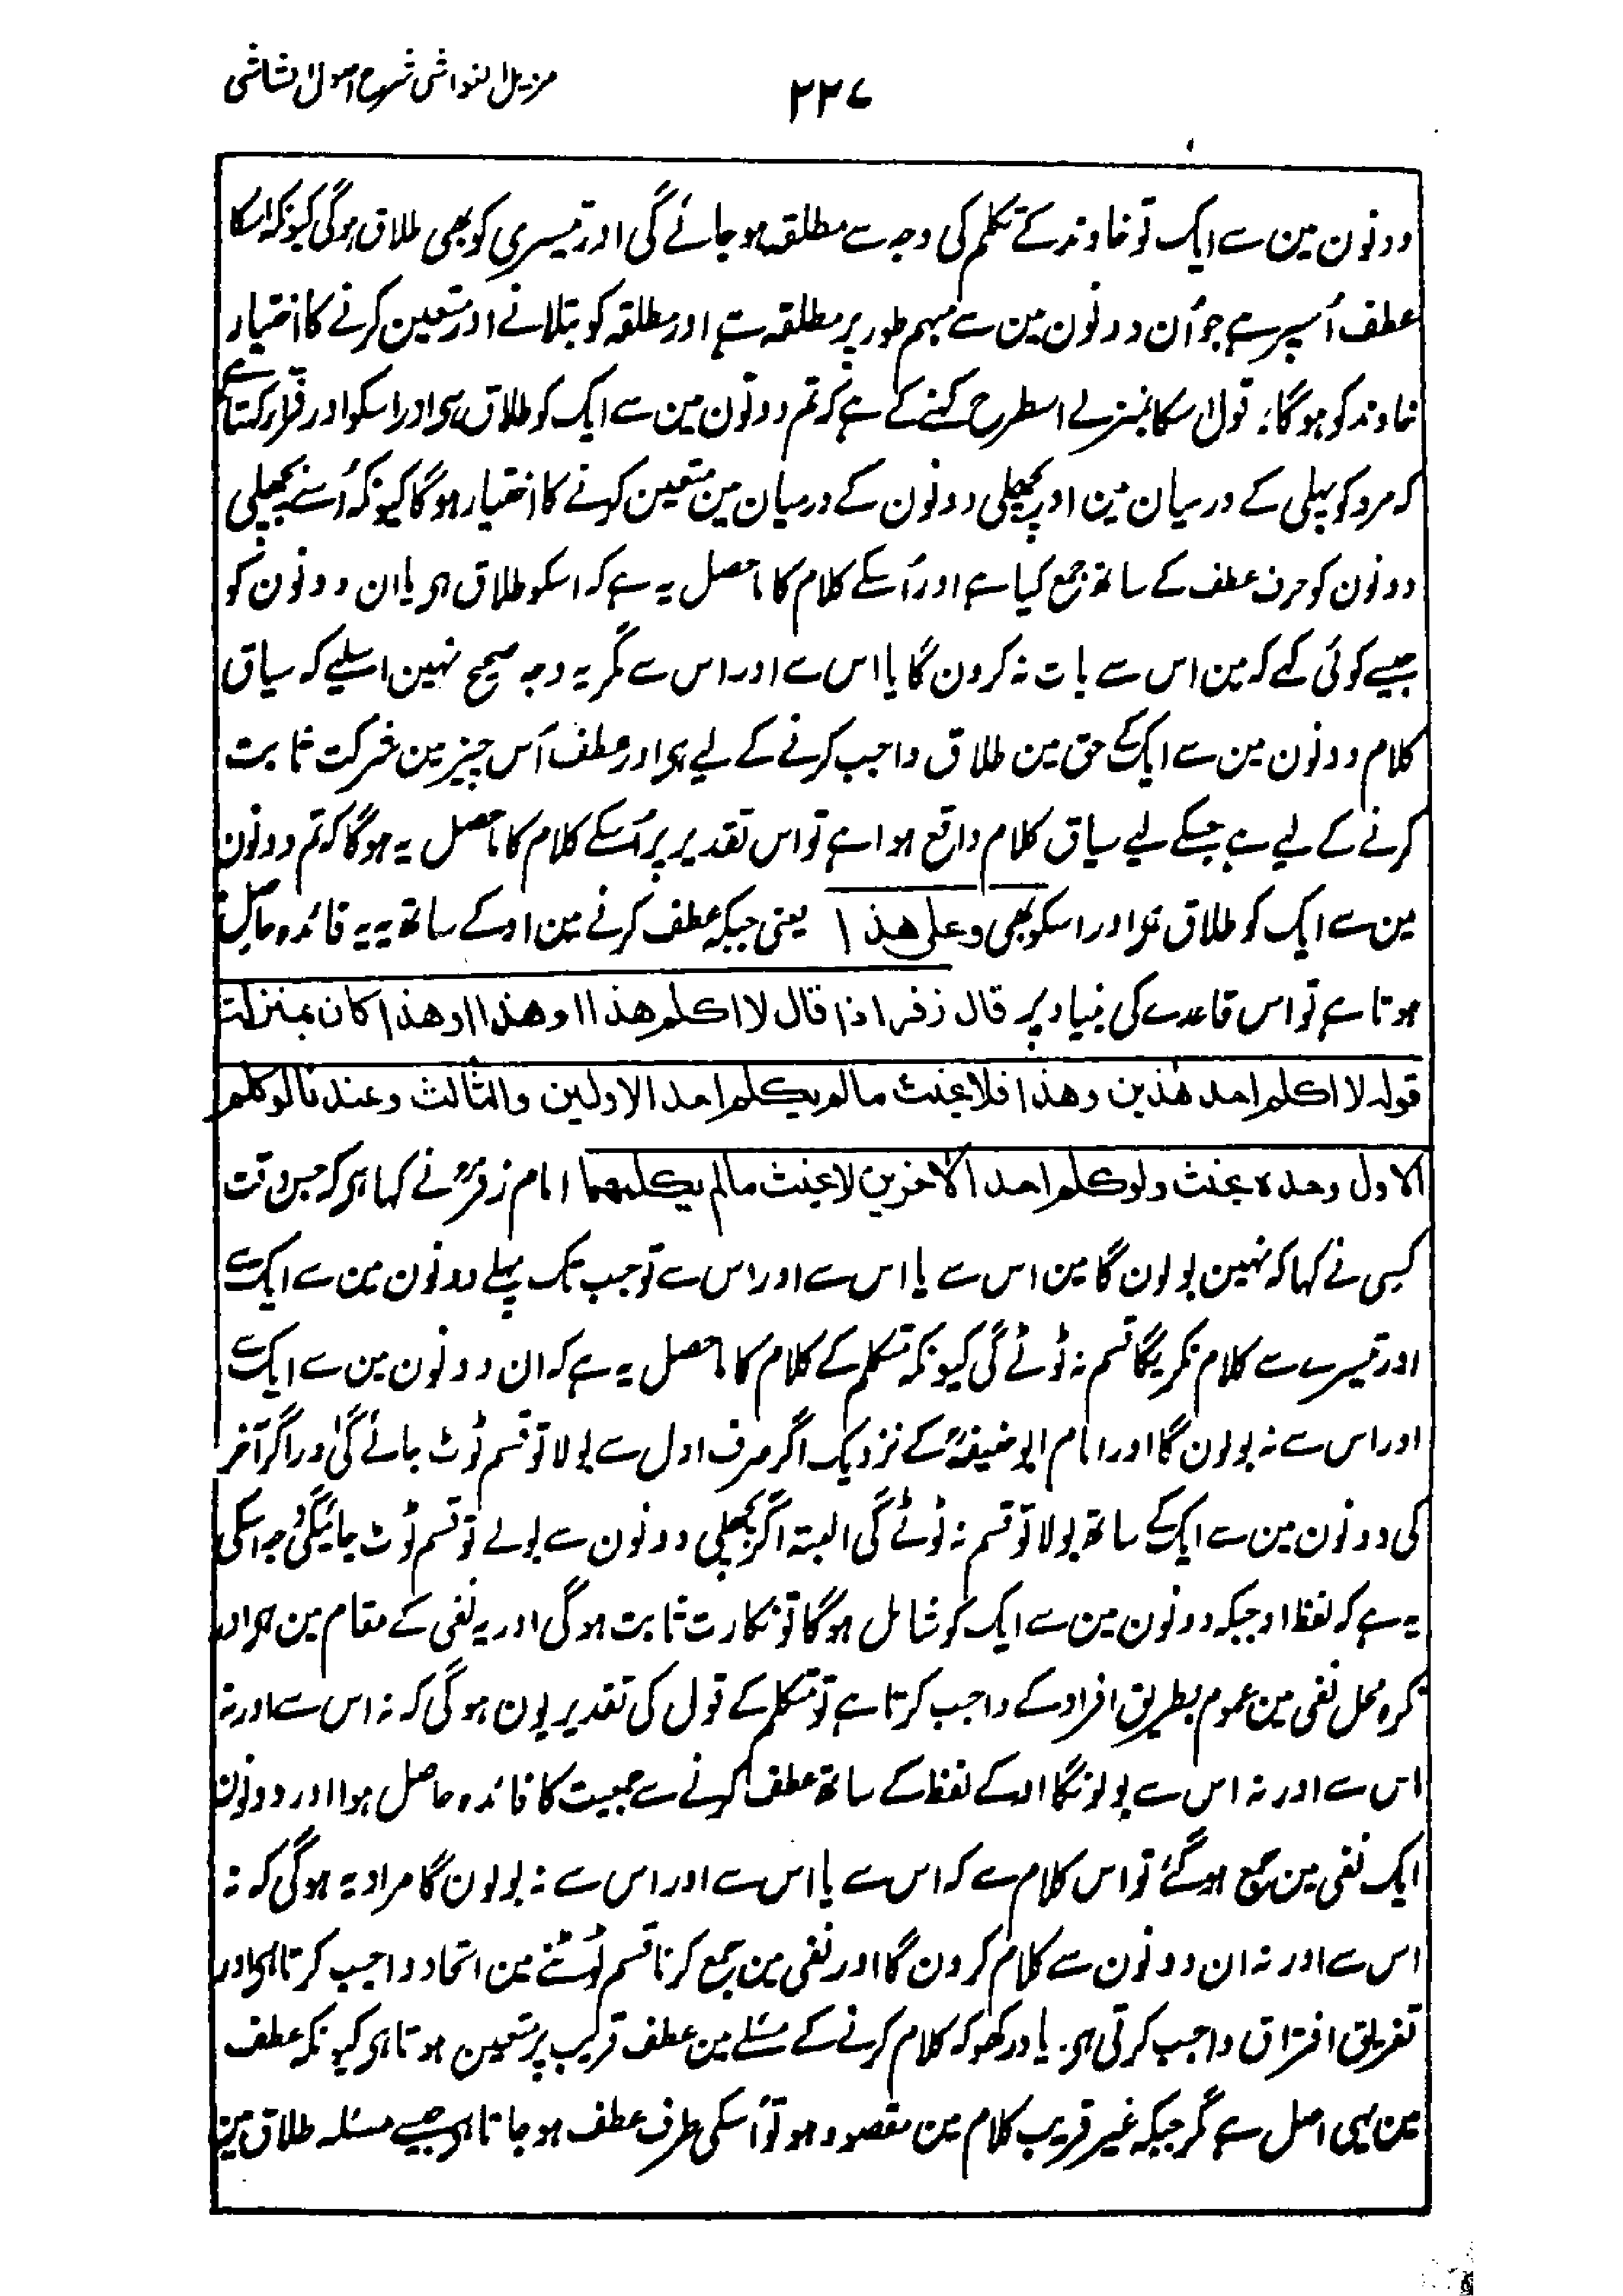 مزیل الغواشی شرح اصول الشاشی
۲۲۷
دونون مین سے ایک تو خاوند کے تکلم کی وجہ سے مطلقہ ہو جائے گی اور تیسری کو بھی طلاق ہوگی کیونکہ اسکا
عطف اُسپر ہے جو اُن دونون مین سے مبہم طور پر مطلقہ ہے اور مطلقہ کو بتلانے اور متعین کرنے کا اختیار
خاوند کو ہوگا؛ قول اسکا بمنزلے اسطرح کہنے کے ہے کہ تم دونون مین سے ایک کو طلاق ہی اور اسکو اور فرار کہتا ہے
کہ مرد کو پہلی کے درمیان مین اور پچھلی دونون کے درمیان مین متعین کرنے کا اختیار ہوگا کیونکہ اُسنے پچھلی
دونون کو حرف عطف کے ساتھ جمع کیا ہے اور اُسکے کلام کا ماحصل یہ ہے کہ اسکو طلاق ہی یا ان دونون کو
جیسے کوئی کہے کہ مین اس سے بات نہ کرون گا یا اس سے اور اس سے مگر یہ وجہ صحیح نہین اسلیے کہ سیاق
کلام دونون مین سے ایک کے حق مین طلاق واجب کرنے کے لیے ہی اور عطف اُس چیز مین شرکت ثابت
کرنے کے لیے ہے جسکے لیے سیاق کلام واقع ہوا ہے تو اس تقدیر پر اُسکے کلام کا ماحصل یہ ہوگا کہ تم دونون
مین سے ایک کو طلاق ہی اور اسکو بھی وعلی هذا یعنی جبکہ عطف کرنے مین او کے ساتھ یہ فائدہ حاصل
ہوتا ہے تو اس قاعدے کی بنیاد پر قال زفر اذا قال لا اکلم هذا او هذا وهذا کان بمنزلة
قوله لا اکلم احد هذین وهذا فلا یحنث ما لم یکلم احد الاولین والثالث وعندنا لو کلم
الاول وحده یحنث ولو کلم احد الآخرین لا یحنث ما لم یکلمهما امام زفرؒ نے کہا ہی کہ جس وقت
کسی نے کہا کہ نہین بولون گا مین اس سے یا اس سے اور اس سے تو جب تک پہلے دونون مین سے ایک سے
اور تیسرے سے کلام نکریگا قسم نہ ٹوٹے گی کیونکہ متکلم کے کلام کا ماحصل یہ ہے کہ ان دونون مین سے ایک سے
اور اس سے نہ بولون گا اور امام ابو حنیفہؒ کے نزدیک اگر صرف اول سے بولا تو قسم ٹوٹ جائے گی اور اگر آخر
کی دونون مین سے ایک کے ساتھ بولا تو قسم نہ ٹوٹے گی البتہ اگر پچھلی دونون سے بولے تو قسم ٹوٹ جائیگی وجہ اسکی
یہ ہے کہ لفظ او جبکہ دونون مین سے ایک کو شامل ہوگا تو نکارت ثابت ہوگی اور یہ نفی کے مقام مین ہی اور
نکرہ محل نفی مین عموم بطریق افراد کے واجب کرتا ہے تو متکلم کے قول کی تقدیر یون ہوگی کہ نہ اس سے اور نہ
اس سے اور نہ اس سے بولونگا او کے لفظ کے ساتھ عطف کرنے سے جمعیت کا فائدہ حاصل ہوا اور دونون
ایک نفی مین جمع ہوگئے تو اس کلام سے کہ اس سے یا اس سے اور اس سے نہ بولون گا مراد یہ ہوگی کہ نہ
اس سے اور نہ ان دونون سے کلام کرون گا اور نفی مین جمع کرنا قسم ٹوٹنے مین اتحاد واجب کرتا ہی اور
تفریق افتراق واجب کرتی ہی. یاد رکھو کہ کلام کرنے کے مسئلے مین عطف قریب پر متعین ہوتا ہی کیونکہ عطف
مین یہی اصل ہے مگر جبکہ غیر قریب کلام مین مقصود ہو تو اُسکی طرف عطف ہو جاتا ہی جیسے مسئلہ طلاق مین